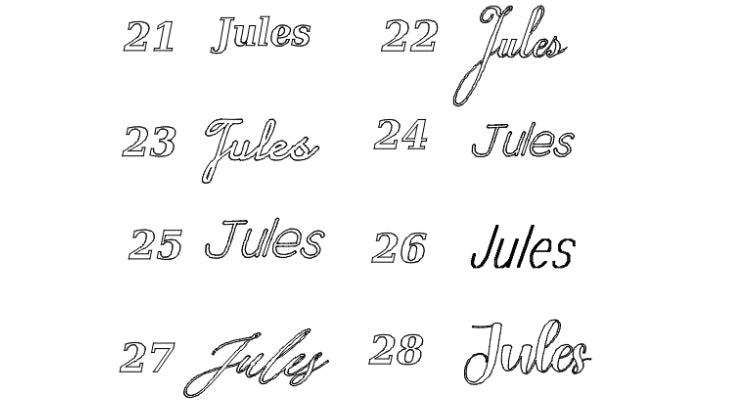 21 Jules 22 Jules
23 Jules 24 Jules
25 Jules 26 Jules
27 Jules 28 Jules